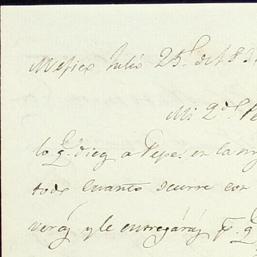 Mexico Julio 25 de 183
Mi q.d
lo q. digo a Pepe en la
todo cuanto ocurre con
verá y le entregará p. q.